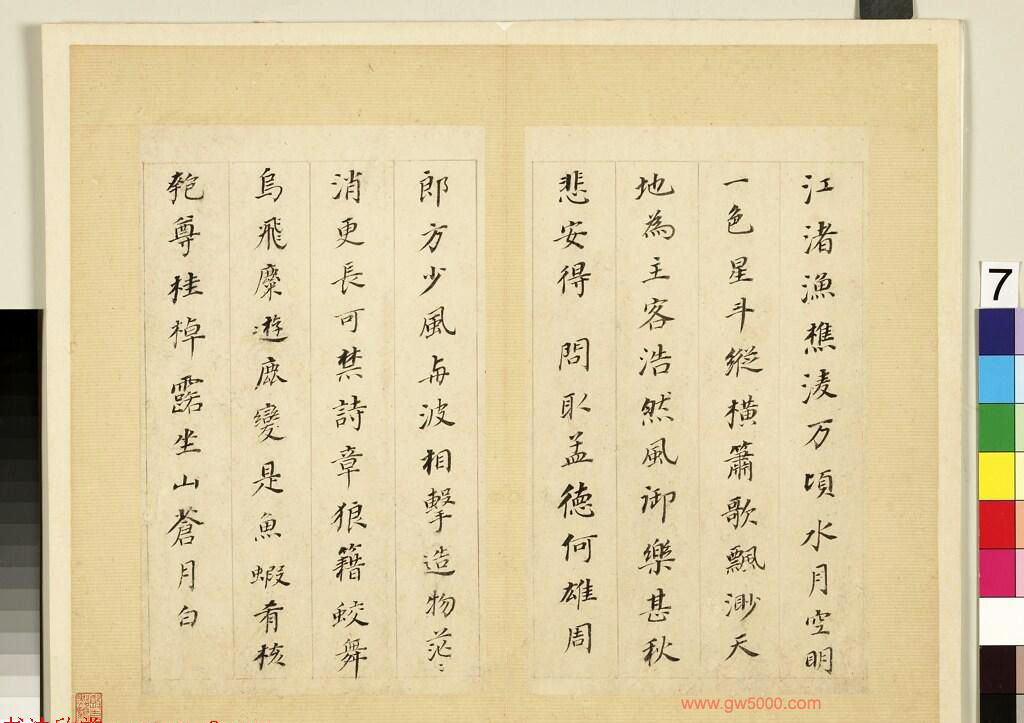 江渚漁樵淩万頃水月空明
一色星斗縱橫簫歌飄渺天
地為主客浩然風御樂甚秋
悲安得 問取孟德何雄周
郎方少風與波相擊造物茫〻
消更長可禁詩章狼籍蛟舞
烏飛麋遊鹿變是魚蝦肴核
匏尊桂棹露坐山蒼月白
www.gw5000.com
7